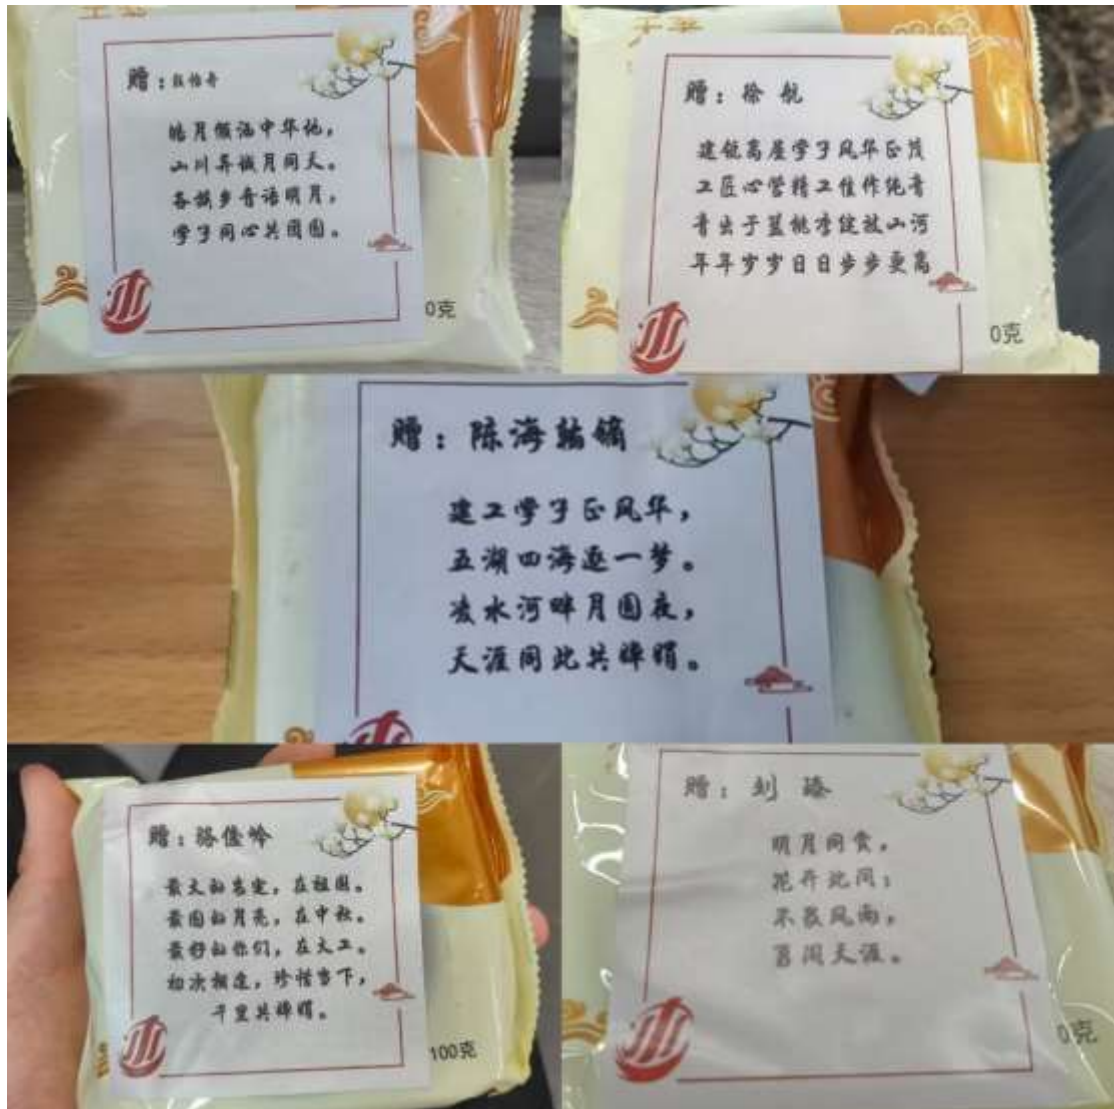 赠：张怡奇
皓月倾洒中华地，
山川异域月同天。
各族乡音语明月，
学子同心共团圆。
0克
赠：徐航
建瓴高屋学子风华正茂
工匠心营精工佳作纯青
青出于蓝桃李绽放山河
年年岁岁日日步步更高
0克
赠：陈海
建工学子正风华，
五湖四海逐一梦。
凌水河畔月圆夜，
天涯同此共婵娟。
赠：骆俊岭
最大的幸运，在祖国。
最圆的月亮，在中秋。
最好的你们，在大工。
初次相逢，珍惜当下，
千里共婵娟。
100克
赠：刘臻
明月同食，
花开此间；
不畏风雨，
勇闯天涯。
0克